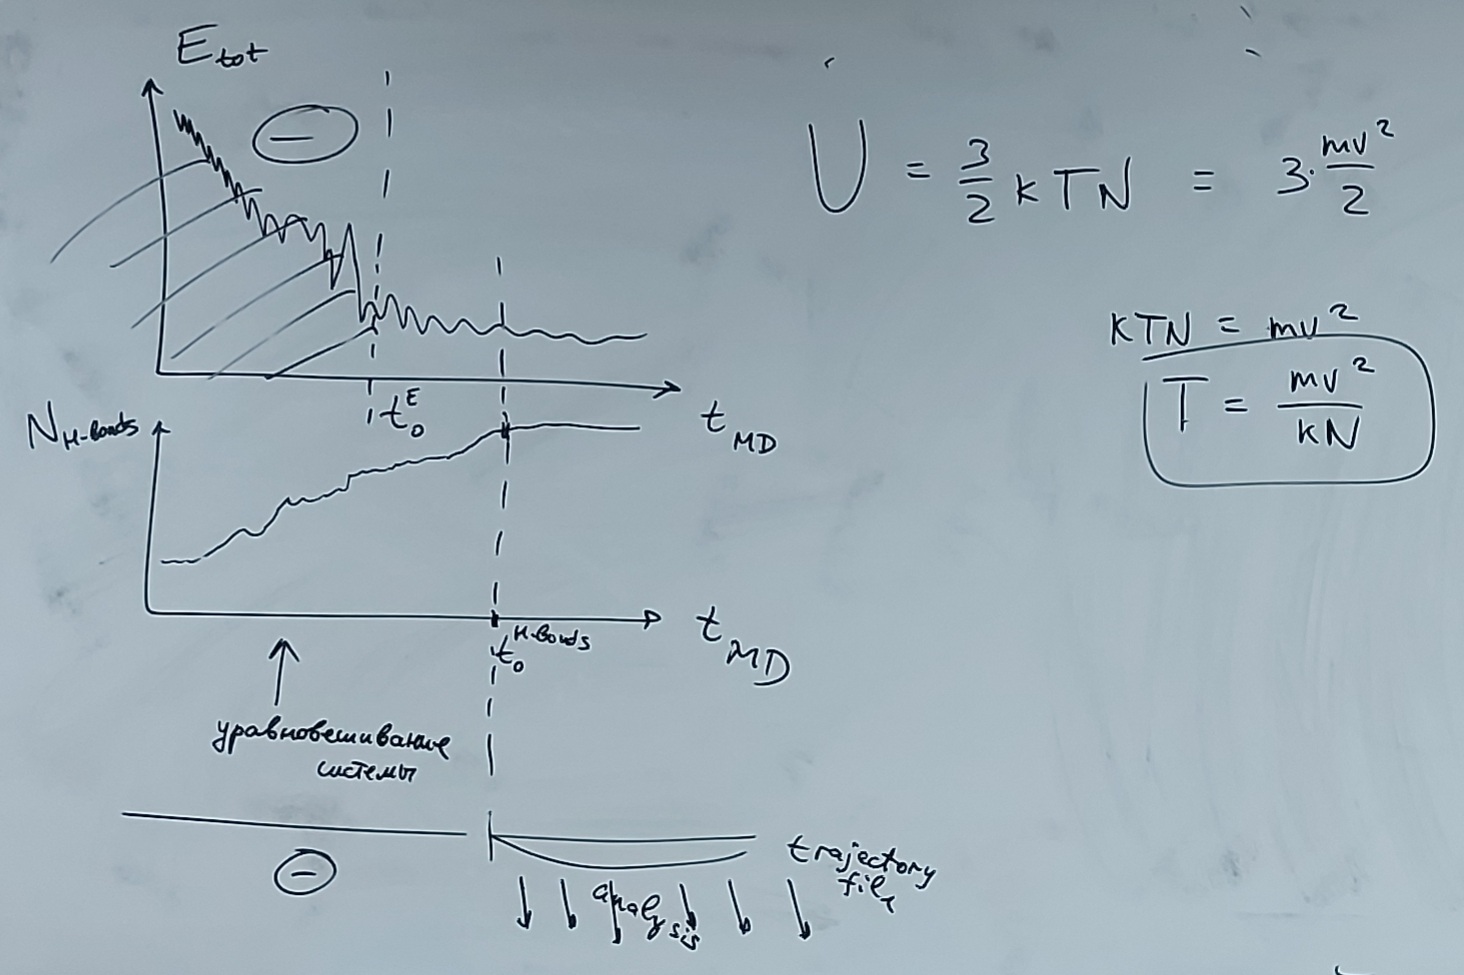 E_tot
−
t_0^E
t_MD
N_H-bonds
t_0^H-bonds
t_MD
уравновешивание
системы
−
trajectory
file
analysis
U = 3/2 kTN = 3·mv²/2
kTN = mv²
T = mv²/kN